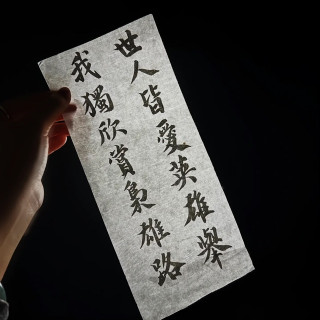 世人皆愛英雄舉
我獨欣賞梟雄路